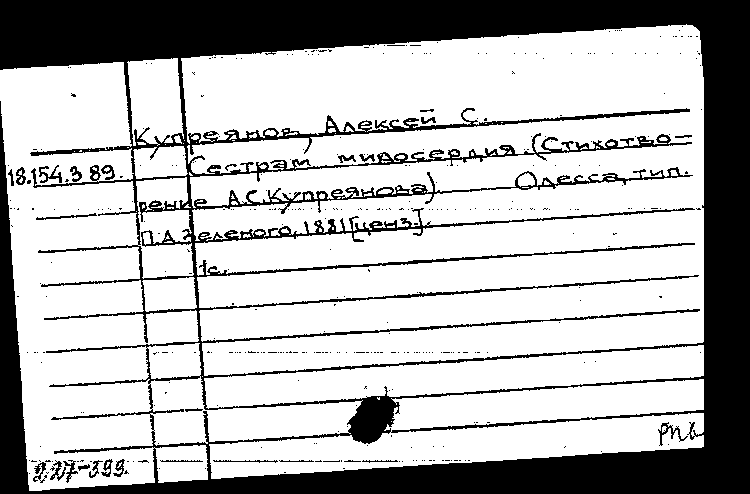 Купреянов, Алексей С.
18.154.3.89. Сестрам милосердия. (Стихотво-
рение А.С.Купреянова). Одесса, тип.
П.А.Зеленого, 1881[ценз.].
1с.
227-399.